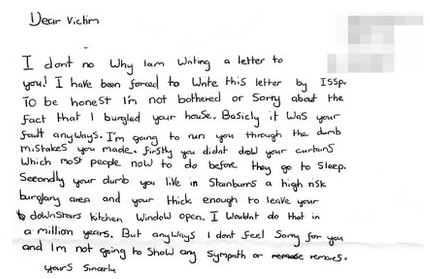 Dear Victim
I dont no Why Iam Writing a letter to
you! I have been forced to Write this letter by ISSP.
To be honest I'm not bothered or Sorry about the
fact that I burgled your house. Basicly it Was your
fault anyways. I'm going to run you through the dumb
mistakes you made. firstly you didnt drow your curtains
Which most people now to do before they go to Sleep.
Secondly your dumb you live in Stainburns a high risk
burglary area and your thick enough to leave your
downstairs kitchen Window open. I Wouldnt do that in
a million years. But anyways I dont feel Sorry for you
and Im not going to Show any Sympath or remores.
yours Sincerly